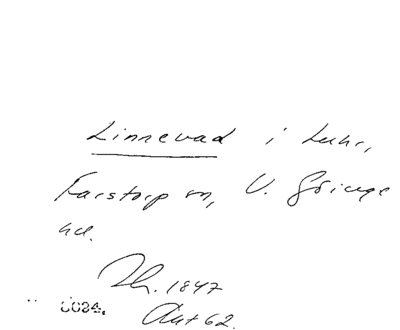 Linnevad i Luhr,
Farstorp sn, V. Göinge
hd.
1847
Akt 62.